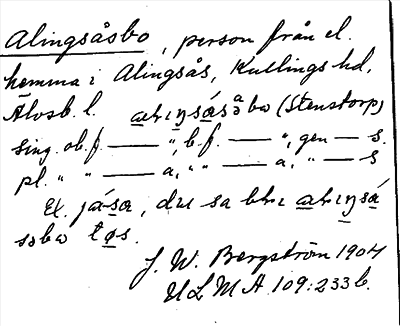 Alingsåsbo, person från el.
hemma i Alingsås, Kullings hd,
Älvsb. l. alıŋsåsbω (Stenstorp)
sing. ob. f. — „, b. f. — „, gen — s.
pl. „ „ — a, „ „ — a, „ — s
Ex. já-sa, du sa blı alıŋsá
sbω tøs.
J. W. Bergström 1904
ULMA 109:233b.